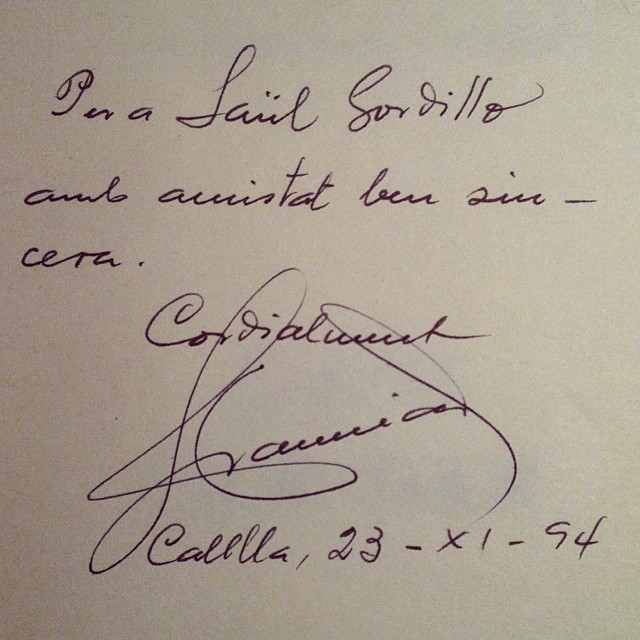 Per a Saül Gordillo
amb amistat ben sin-
cera.
Cordialment
Calella, 23-XI-94